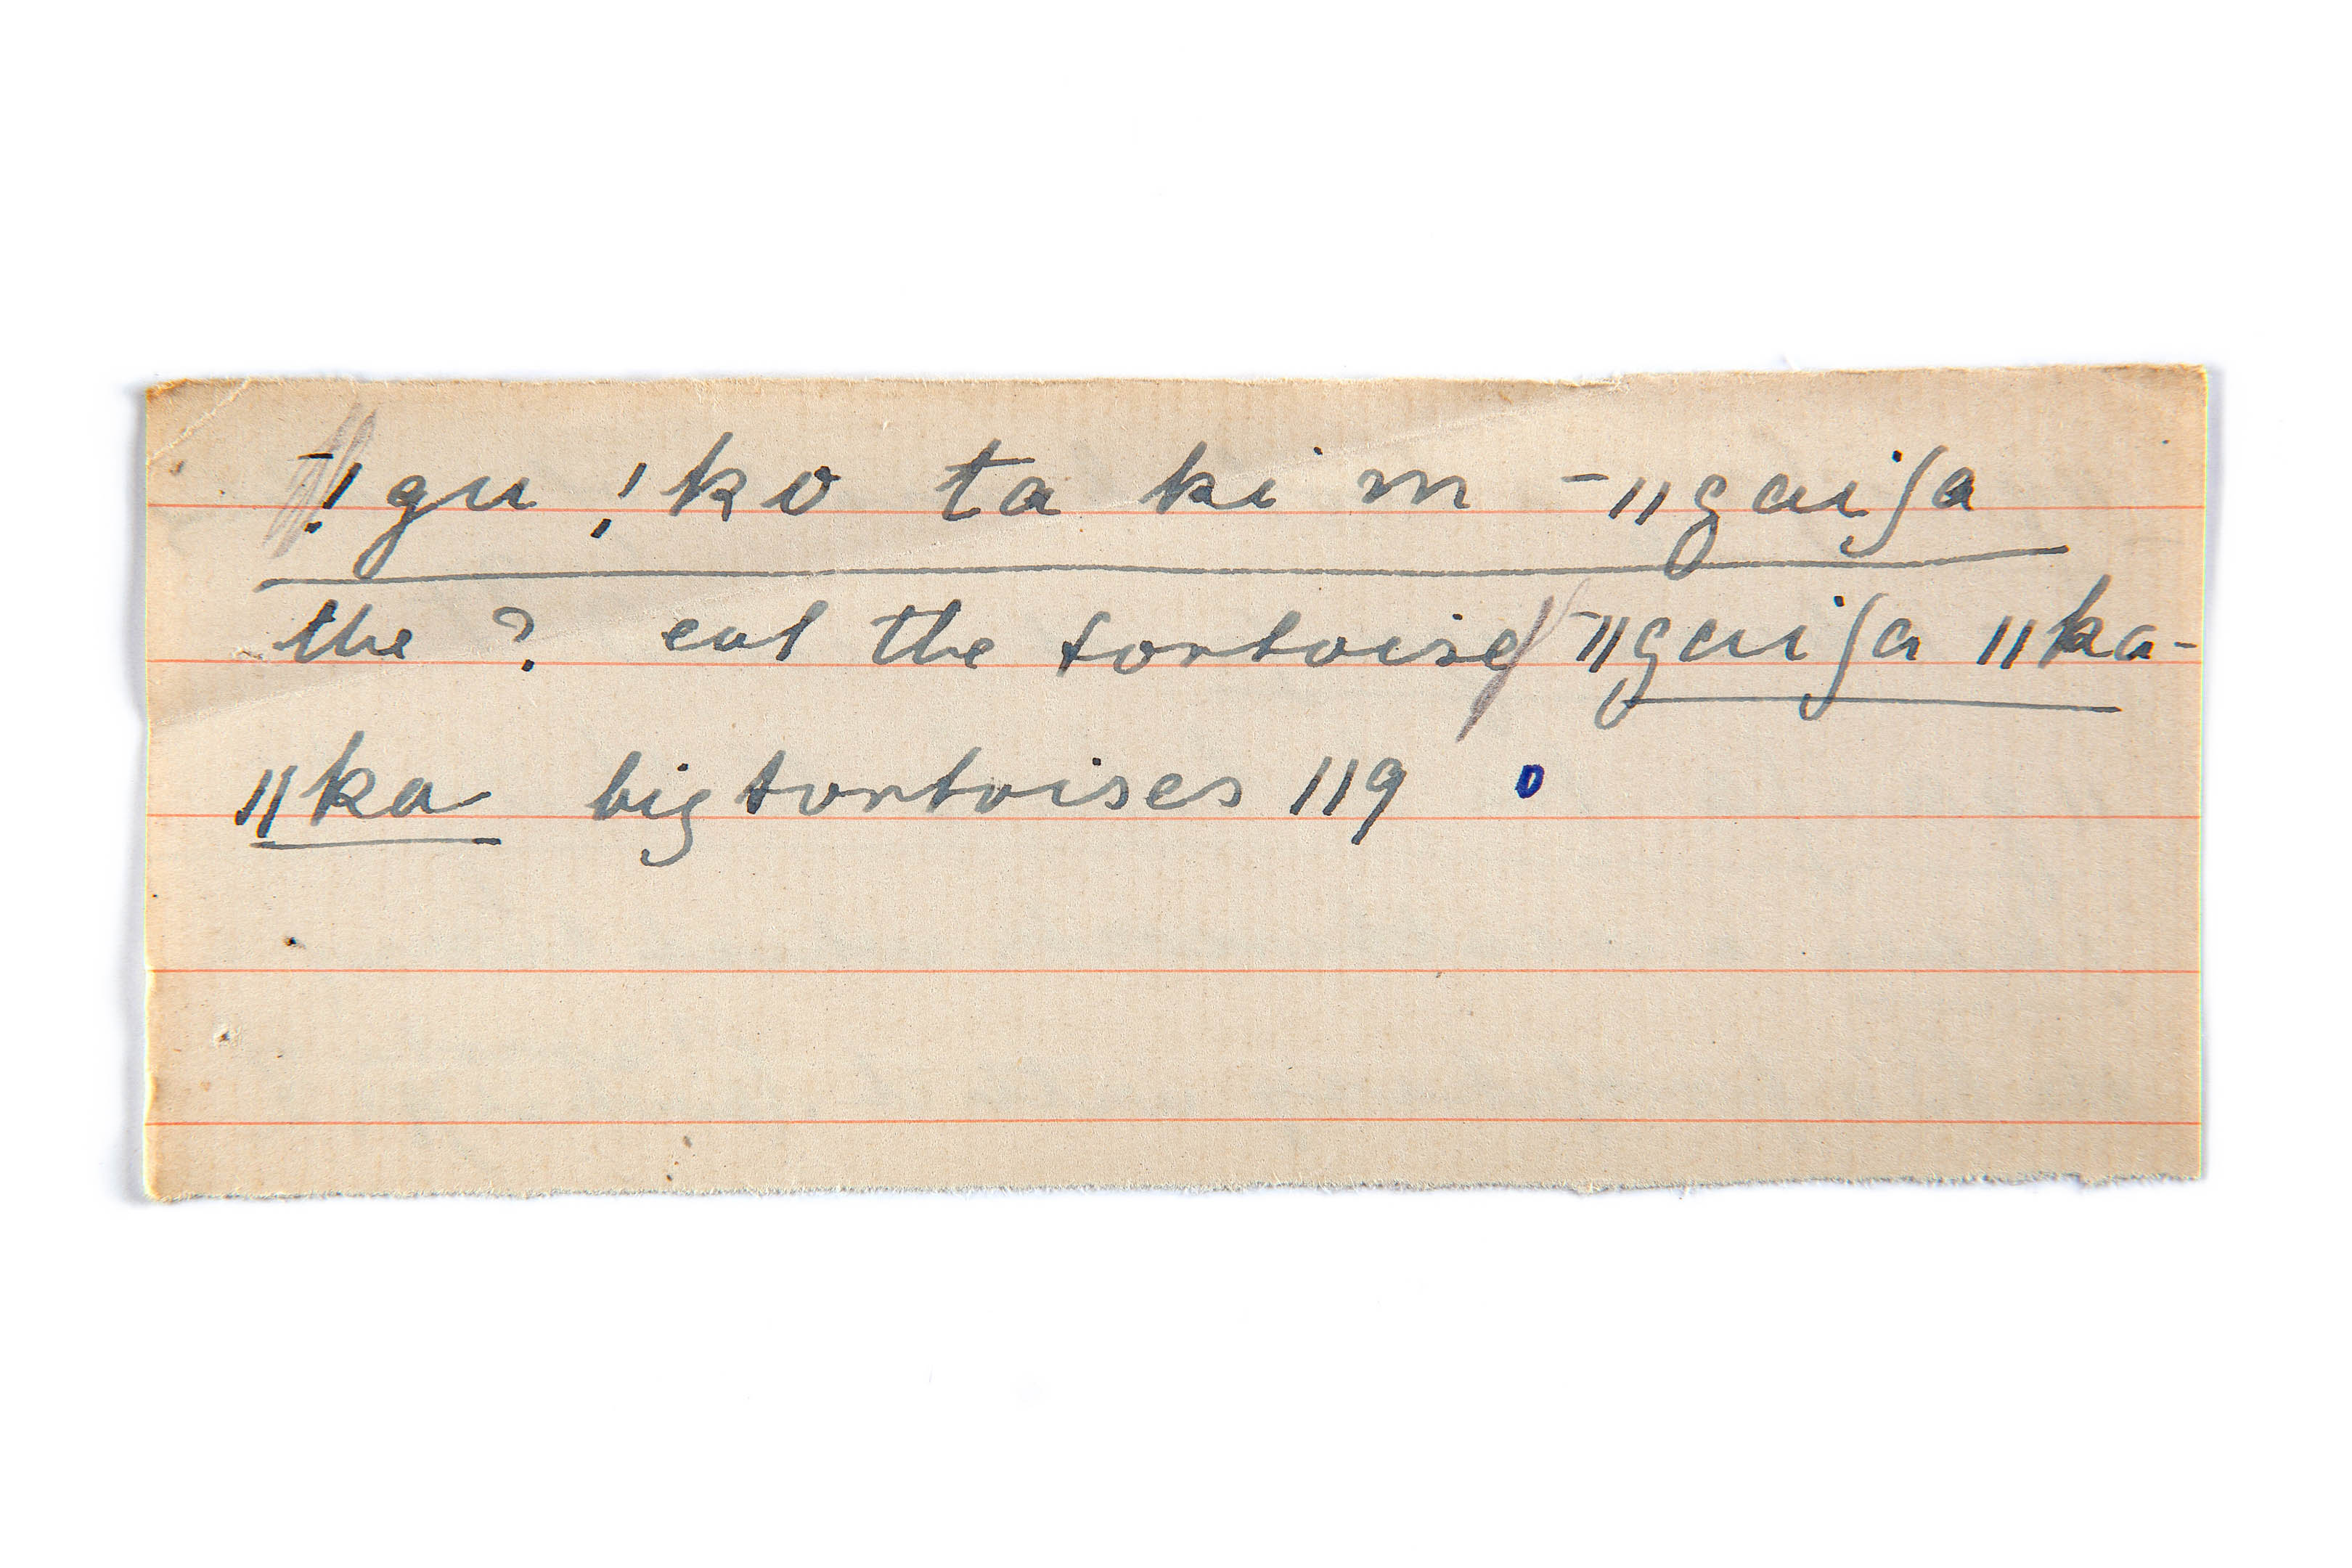 ‾!gu !ko ta ki m ‾ǁgaiʃa
the ? eat the tortoise ‾ǁgaiʃa ǁka-
ǁka big tortoises 119 0